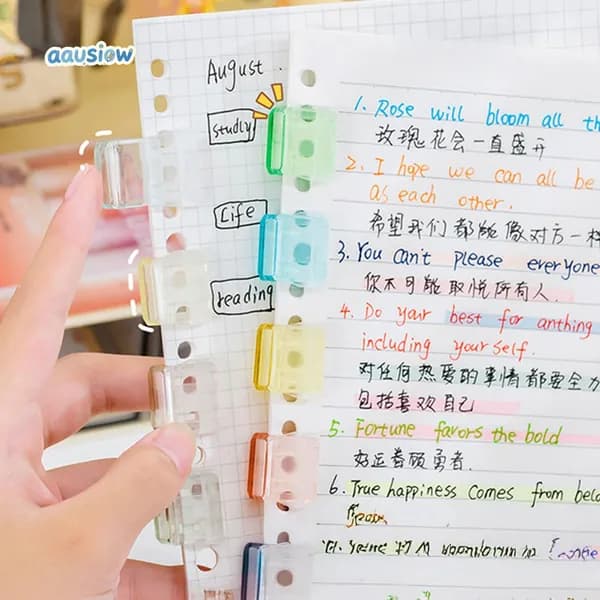 aausiow
August.
studly
Life
reading
1. Rose will bloom all th
玫瑰花会一直盛开
2. I hope we can all be
as each other.
希望我们都能像对方一样
3. You can't please everyone
你不可能取悦所有人.
4. Do your best for anthing
including yourself.
对任何热爱的事情都要全力
包括喜欢自己
5. Fortune favors the bold
好运眷顾勇者.
6. True happiness comes from